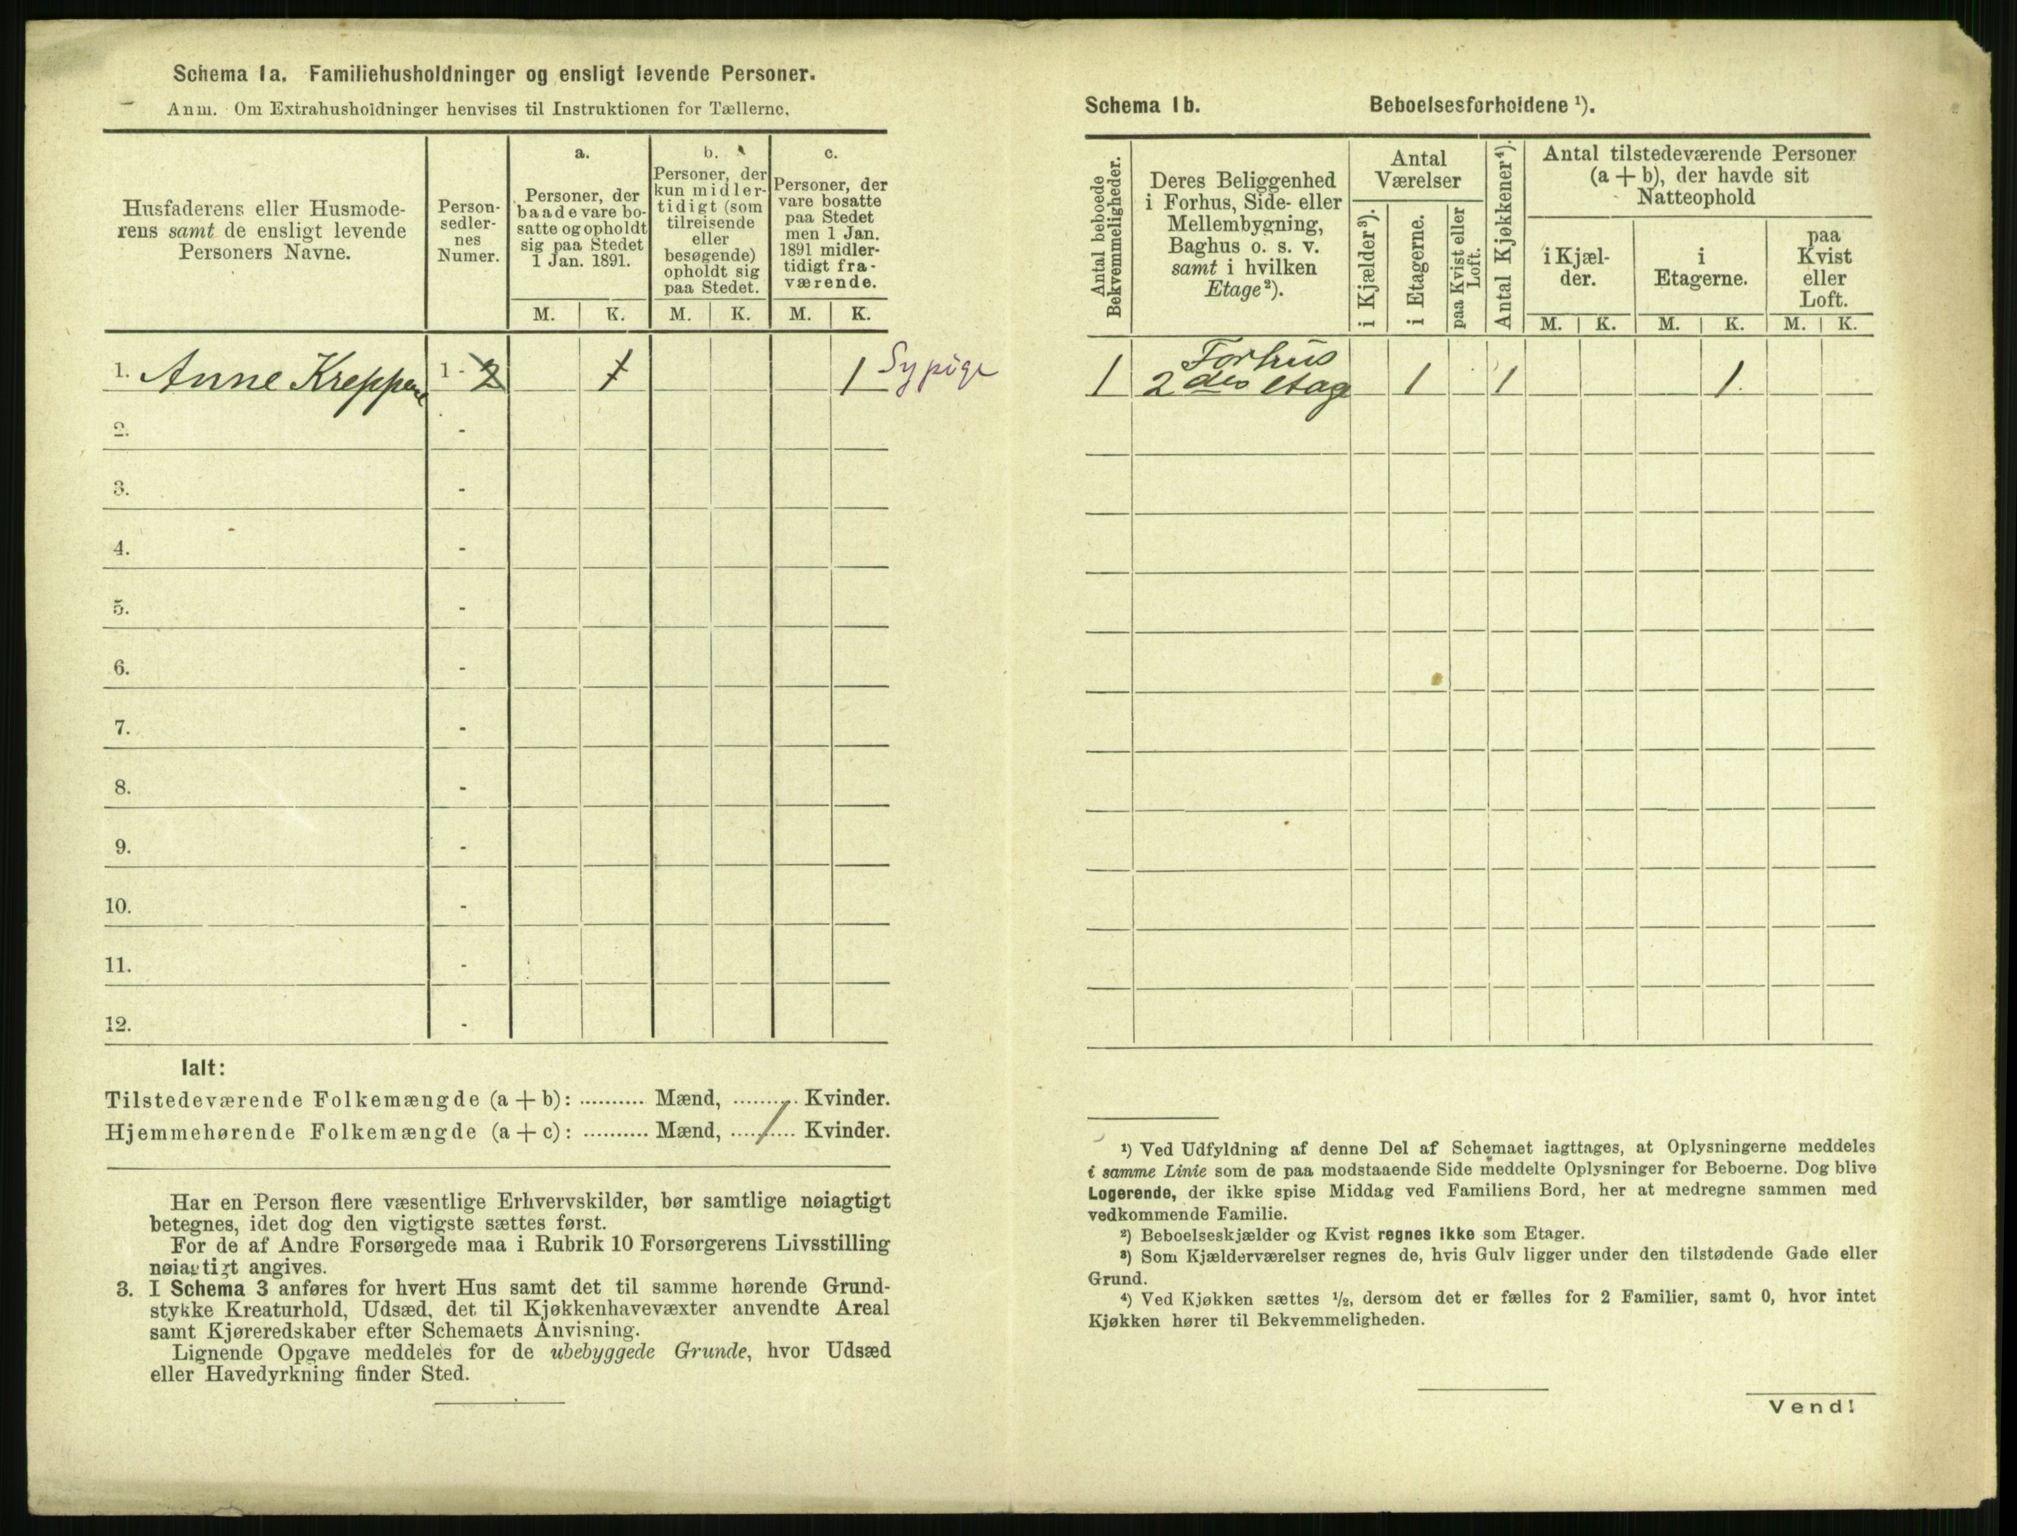 Schema 1a. Familiehusholdninger og ensligt levende Personer.
Anm. Om Extrahusholdninger henvises til Instruktionen for Tællerne.
Husfaderens eller Husmode-
rens samt de ensligt levende
Personers Navne.
Person-
sedler-
nes
Numer.
a.
Personer, der
baade vare bo-
satte og opholdt
sig paa Stedet
1 Jan. 1891.
b.
Personer, der
kun midler-
tidigt (som
tilreisende
eller
besøgende)
opholdt sig
paa Stedet.
c.
Personer, der
vare bosatte
paa Stedet
men 1 Jan.
1891 midler-
tidigt fra-
værende.
M. K. M. K. M. K.
1. Anne Kreppen 1 - 2 1 1 Sypige
2. -
3. -
4. -
5. -
6. -
7. -
8. -
9. -
10. -
11. -
12. -
Ialt:
Tilstedeværende Folkemængde (a + b): .......... Mænd, .......... Kvinder.
Hjemmehørende Folkemængde (a + c): .......... Mænd, ....1.... Kvinder.
Har en Person flere væsentlige Erhvervskilder, bør samtlige nøiagtigt
betegnes, idet dog den vigtigste sættes først.
For de af Andre Forsørgede maa i Rubrik 10 Forsørgerens Livsstilling
nøiagtigt angives.
3. I Schema 3 anføres for hvert Hus samt det til samme hørende Grund-
stykke Kreaturhold, Udsæd, det til Kjøkkenhavevæxter anvendte Areal
samt Kjøreredskaber efter Schemaets Anvisning.
Lignende Opgave meddeles for de ubebyggede Grunde, hvor Udsæd
eller Havedyrkning finder Sted.
Schema 1b. Beboelsesforholdene ¹).
Antal beboede
Bekvemmeligheder.
Deres Beliggenhed
i Forhus, Side- eller
Mellembygning,
Baghus o. s. v.
samt i hvilken
Etage²).
Antal
Værelser
i Kjælder³).
i Etagerne.
paa Kvist eller
Loft.
Antal Kjøkkener⁴).
Antal tilstedeværende Personer
(a + b), der havde sit
Natteophold
i Kjæl-
der.
i
Etagerne.
paa
Kvist
eller
Loft.
M. K. M. K. M. K.
Forhus
1 2 den etage 1 1 1.
¹) Ved Udfyldning af denne Del af Schemaet iagttages, at Oplysningerne meddeles
i samme Linie som de paa modstaaende Side meddelte Oplysninger for Beboerne. Dog blive
Logerende, der ikke spise Middag ved Familiens Bord, her at medregne sammen med
vedkommende Familie.
²) Beboelseskjælder og Kvist regnes ikke som Etager.
³) Som Kjælderværelser regnes de, hvis Gulv ligger under den tilstødende Gade eller
Grund.
⁴) Ved Kjøkken sættes ½, dersom det er fælles for 2 Familier, samt 0, hvor intet
Kjøkken hører til Bekvemmeligheden.
Vend!